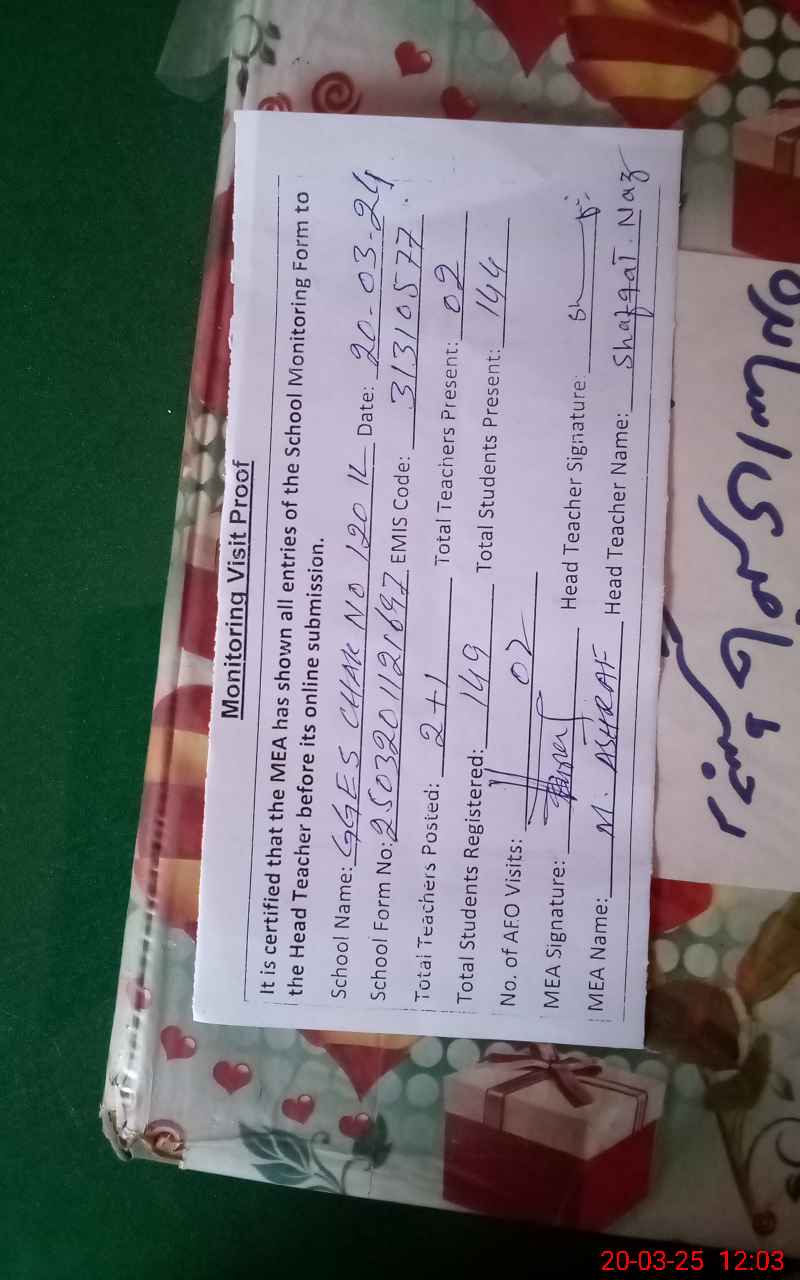 Monitoring Visit Proof
It is certified that the MEA has shown all entries of the School Monitoring Form to
the Head Teacher before its online submission.
School Name: GGES CHAK NO 120 1L Date: 20-03-24
School Form No: 2503201121697 EMIS Code: 31310577
Total Teachers Posted: 2+1 Total Teachers Present: 02
Total Students Registered: 149 Total Students Present: 144
No. of AFO Visits: 02
MEA Signature: Head Teacher Signature:
MEA Name: M. ASHRAF Head Teacher Name: Shafqat. Naz
20-03-25 12:03